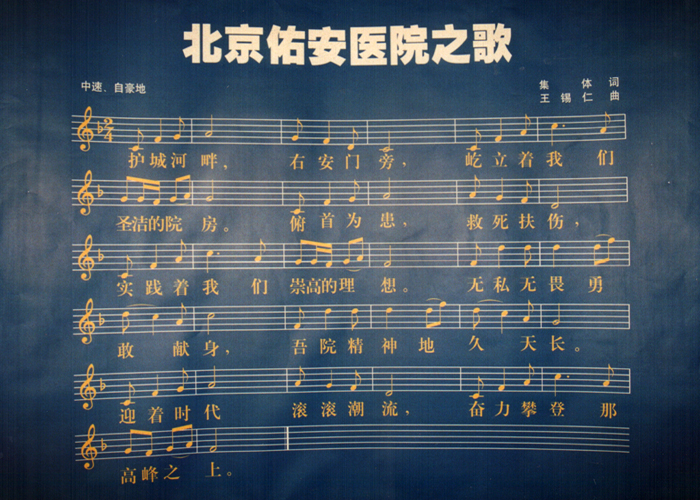 北京佑安医院之歌
中速．自豪地
集体词
王锡仁曲
2
4
护城河畔，右安门旁，屹立着我们
圣洁的院房。俯首为患，救死扶伤，
实践着我们崇高的理想。无私无畏勇
敢献身，吾院精神地久天长。
迎着时代滚滚潮流，奋力攀登那
高峰之上。